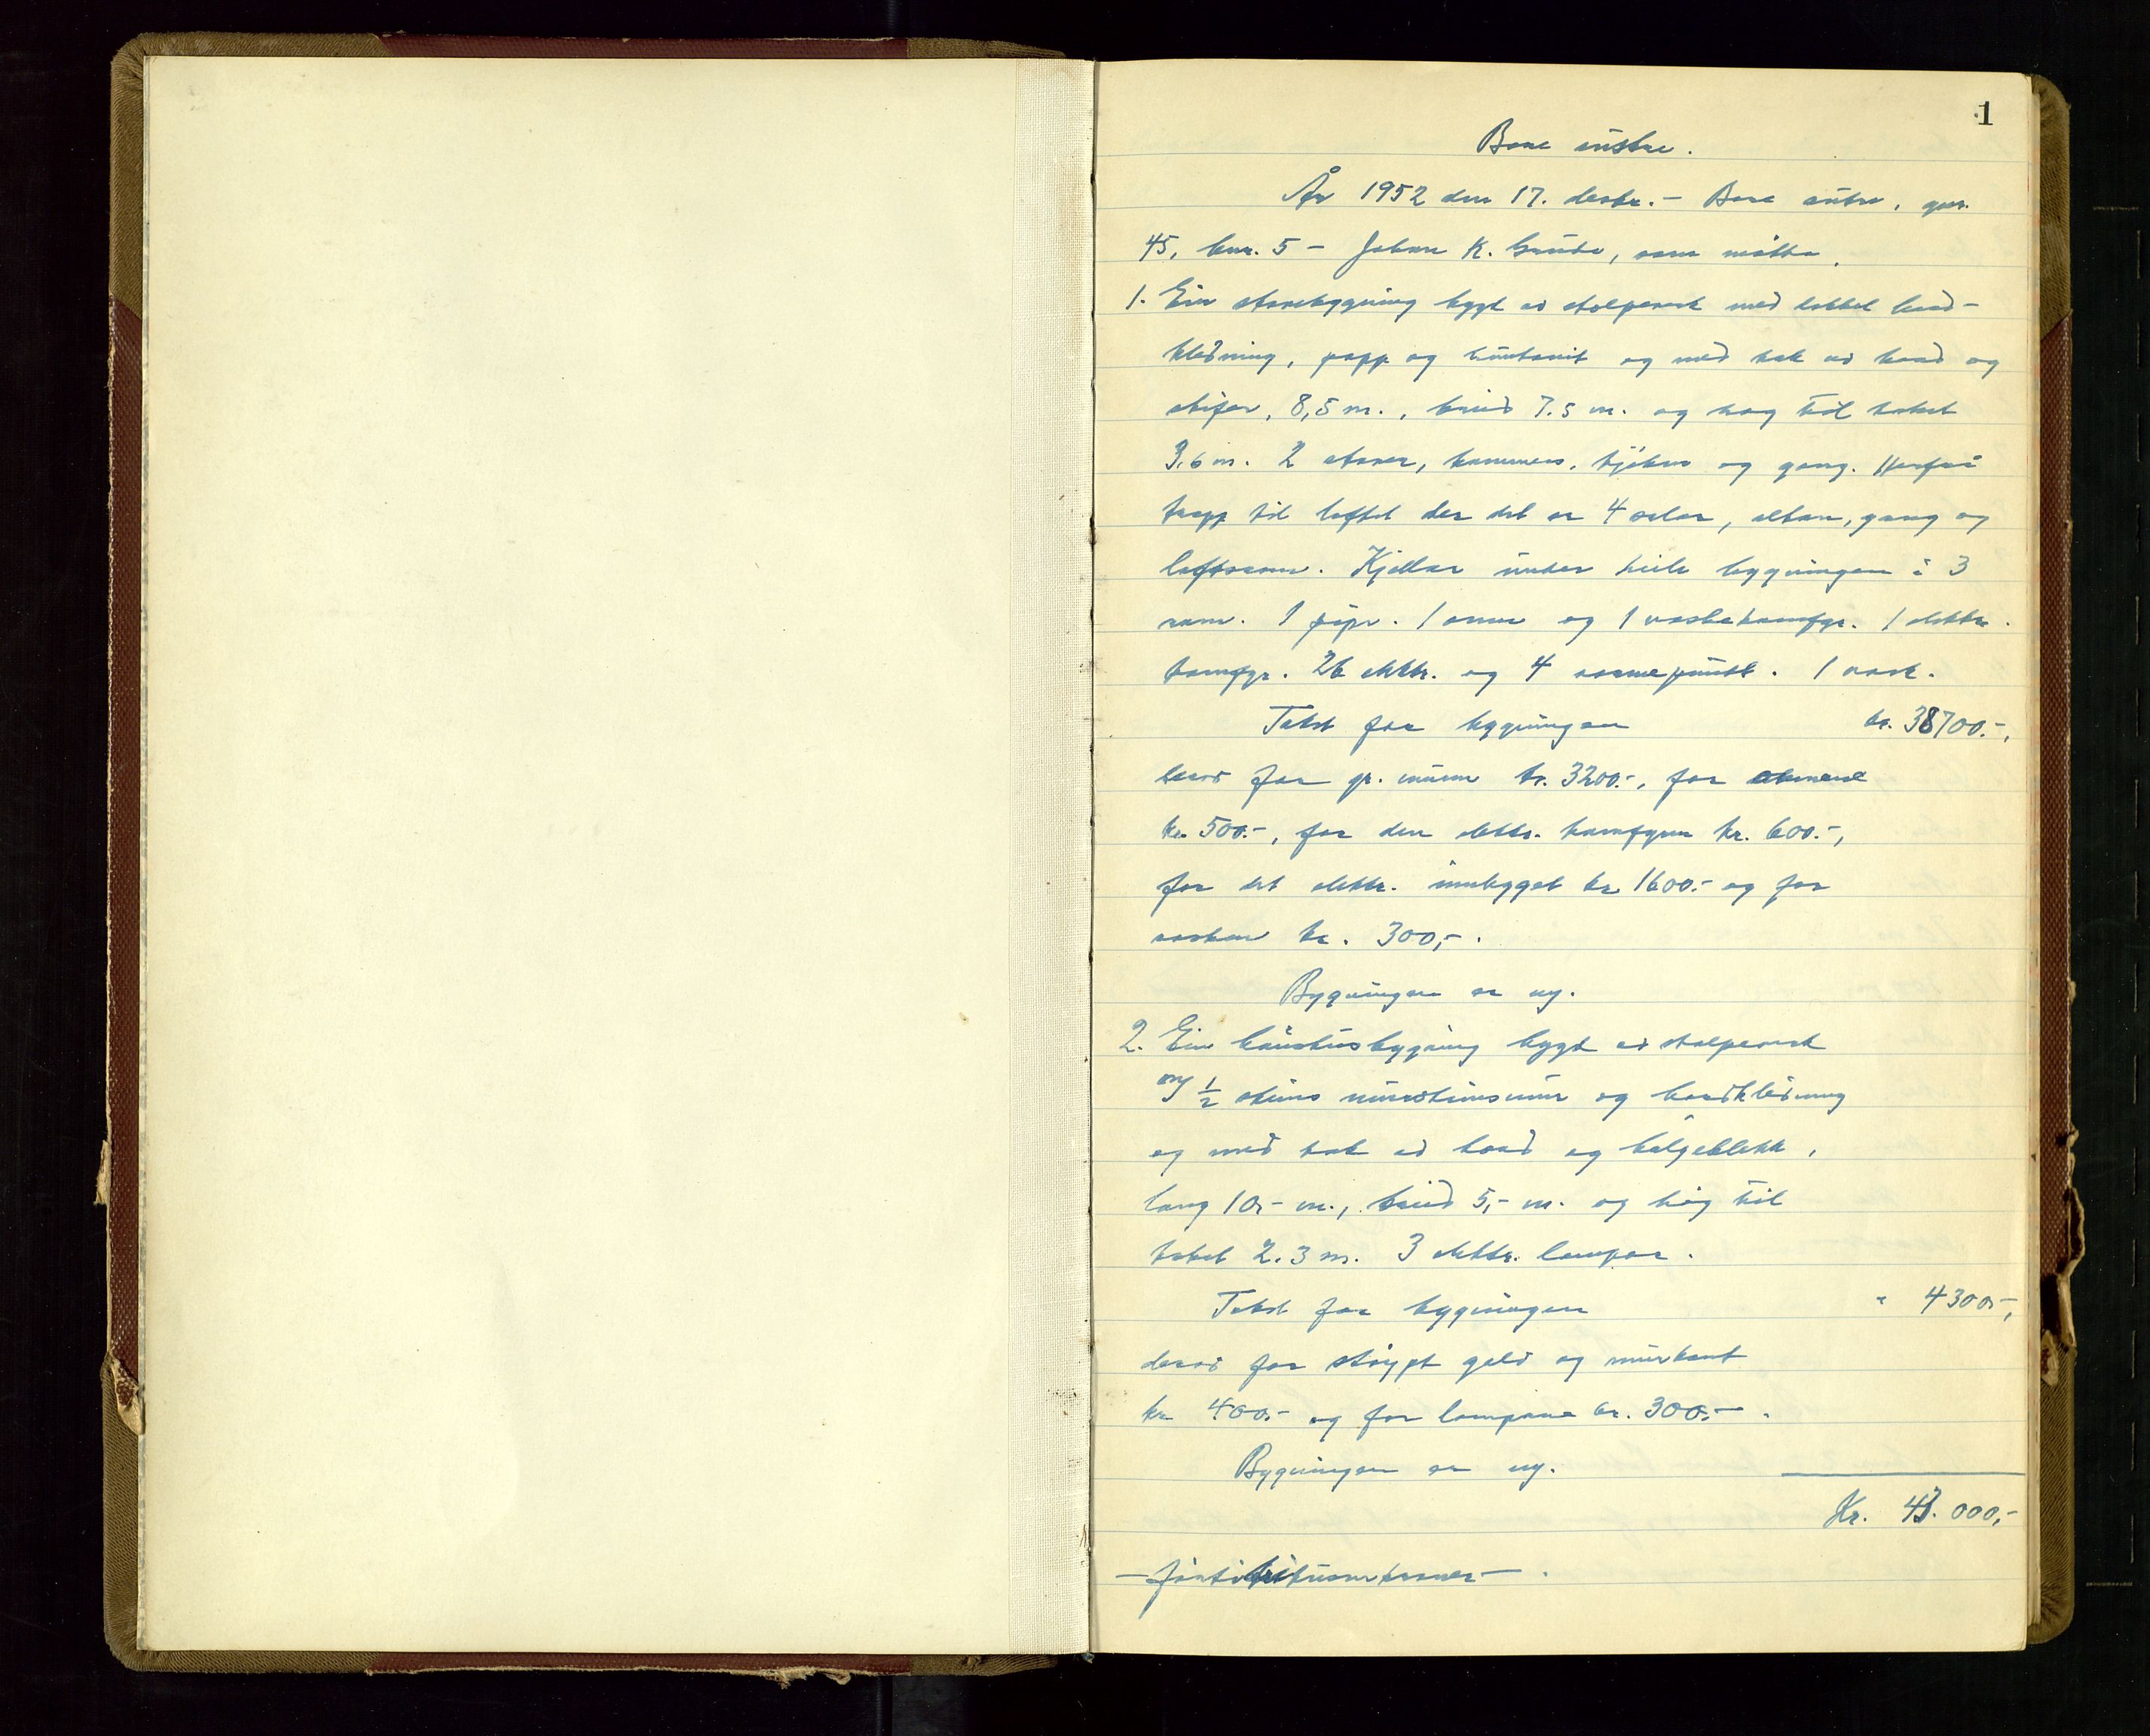 1
Bore indre.
År 1952 den 17. desbr. – Bore indre, gnr.
45, bnr. 5 – Johan K. Grude, som møtte.
1. Ein stovebygning bygt av stolpverk med dobbel bord-
kledning, papp og huntonit og med tak av bord og
skifer, 8,5 m., breid 7.5 m. og høg til taket
3.6 m. 2 stover, kammers, kjøken og gang. Herfrå
trapp til loftet der det er 4 soler, altan, gang og
loftsrom. Kjellar under heile bygningen i 3
rom. 1 pipe. 1 omn og 1 vaskekomfyr. 1 elektr.
komfyr. 26 elektr. og 4 varmepunkt. 1 vask.
Takst for bygningen kr. 38700.-,
derav for gr. muren kr. 3200.-, for omnene
kr. 500.-, for den elektr. komfyren kr. 600.-,
for det elektr. innbygget kr. 1600.- og for
vasken kr. 300,-.
Bygningen er ny.
2. Ein hønehusbygning bygt av stolpeverk
og 1/2 steins mursteinsmur og bordkledning
og med tak av bord og bølgeblekk,
lang 10,- m., breid 5,- m. og høg til
taket 2.3 m. 3 elektr. lamper.
Takst for bygningen " 4300,-,
derav for støypt golv og murkant
kr. 400,- og for lampene kr. 300,-.
Bygningen er ny.
Kr. 43.000,-
– førtitritusen kroner – .